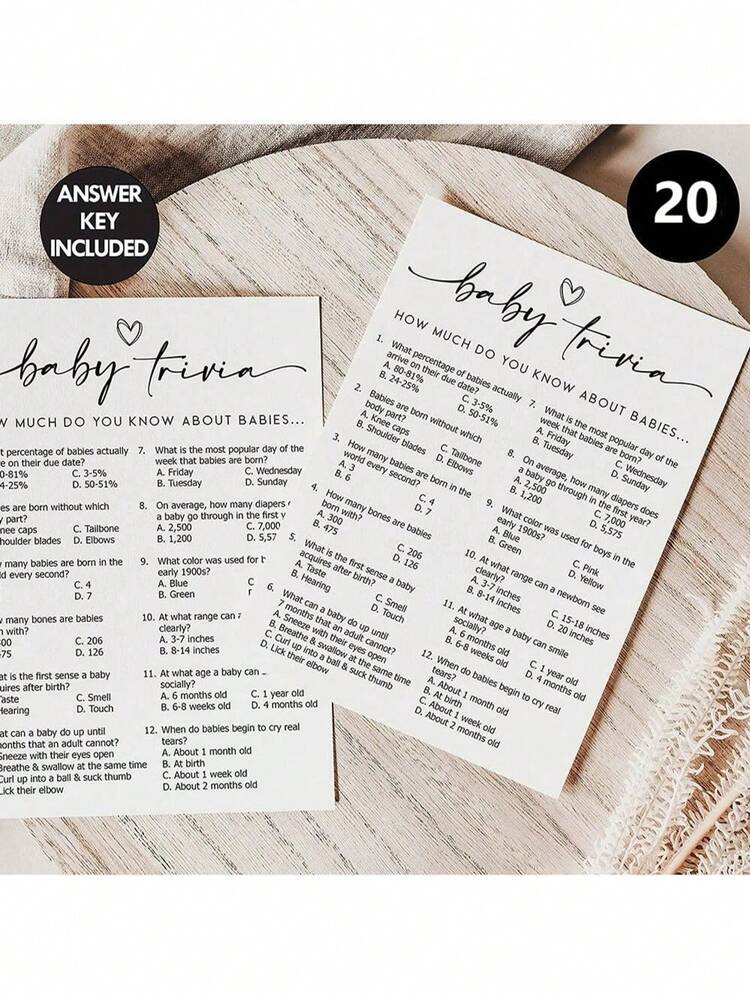 ANSWER
KEY
INCLUDED
20
baby trivia
MUCH DO YOU KNOW ABOUT BABIES...
percentage of babies actually
on their due date?
C. 3-5%
D. 50-51%
are born without which
part?
caps C. Tailbone
blades D. Elbows
many babies are born in the
every second?
C. 4
D. 7
many bones are babies
with?
C. 206
D. 126
is the first sense a baby
after birth?
C. Smell
D. Touch
can a baby do up until
that an adult cannot?
with their eyes open
& swallow at the same time
up into a ball & suck thumb
their elbow
7. What is the most popular day of the
week that babies are born?
A. Friday C. Wednesday
B. Tuesday D. Sunday
8. On average, how many diapers
a baby go through in the first
A. 2,500 C. 7,000
B. 1,200 D.
9. What color was used for
early 1900s?
A. Blue
B. Green
10. At what range can
clearly?
A. 3-7 inches
B. 8-14 inches
11. At what age a baby can
socially?
A. 6 months old C. 1 year old
B. 6-8 weeks old D. 4 months old
12. When do babies begin to cry real
tears?
A. About 1 month old
B. At birth
C. About 1 week old
D. About 2 months old
baby trivia
HOW MUCH DO YOU KNOW ABOUT BABIES...
1. What percentage of babies actually
arrive on their due date?
A. 80-81% C. 3-5%
B. 24-25% D. 50-51%
2. Babies are born without which
body part?
A. Knee caps C. Tailbone
B. Shoulder blades D. Elbows
3. How many babies are born in the
world every second?
A. 3 C. 4
B. 6 D. 7
4. How many bones are babies
born with?
A. 300 C. 206
B. 475 D. 126
5. What is the first sense a baby
acquires after birth?
A. Taste C. Smell
B. Hearing D. Touch
6. What can a baby do up until
7 months that an adult cannot?
A. Sneeze with their eyes open
B. Breathe & swallow at the same time
C. Curl up into a ball & suck thumb
D. Lick their elbow
7. What is the most popular day of the
week that babies are born?
A. Friday C. Wednesday
B. Tuesday D. Sunday
8. On average, how many diapers does
a baby go through in the first year?
A. 2,500 C. 7,000
B. 1,200 D. 5,575
9. What color was used for boys in the
early 1900s?
A. Blue C. Pink
B. Green D. Yellow
10. At what range can a newborn see
clearly?
A. 3-7 inches C. 15-18 inches
B. 8-14 inches D. 20 inches
11. At what age a baby can smile
socially?
A. 6 months old C. 1 year old
B. 6-8 weeks old D. 4 months old
12. When do babies begin to cry real
tears?
A. About 1 month old
B. At birth
C. About 1 week old
D. About 2 months old